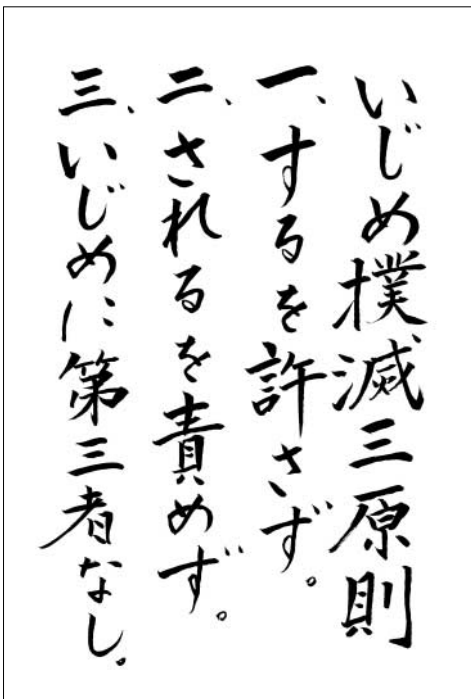 いじめ撲滅三原則
一、するを許さず。
二、されるを責めず。
三、いじめに第三者なし。